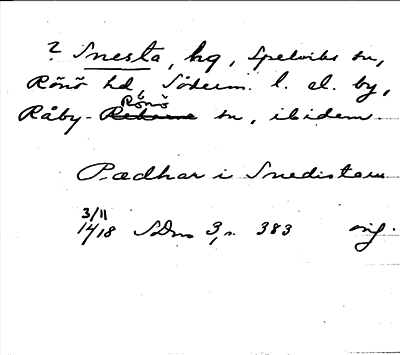 ? Snesta, hg, Spelviks sn,
Rönö hd, Söderm. l. el. by,
Rönö
Råby- Rekarne sn, ibidem.
Pædhar i Snedistum
3/11
1418 SDns 3, s. 383 orig.